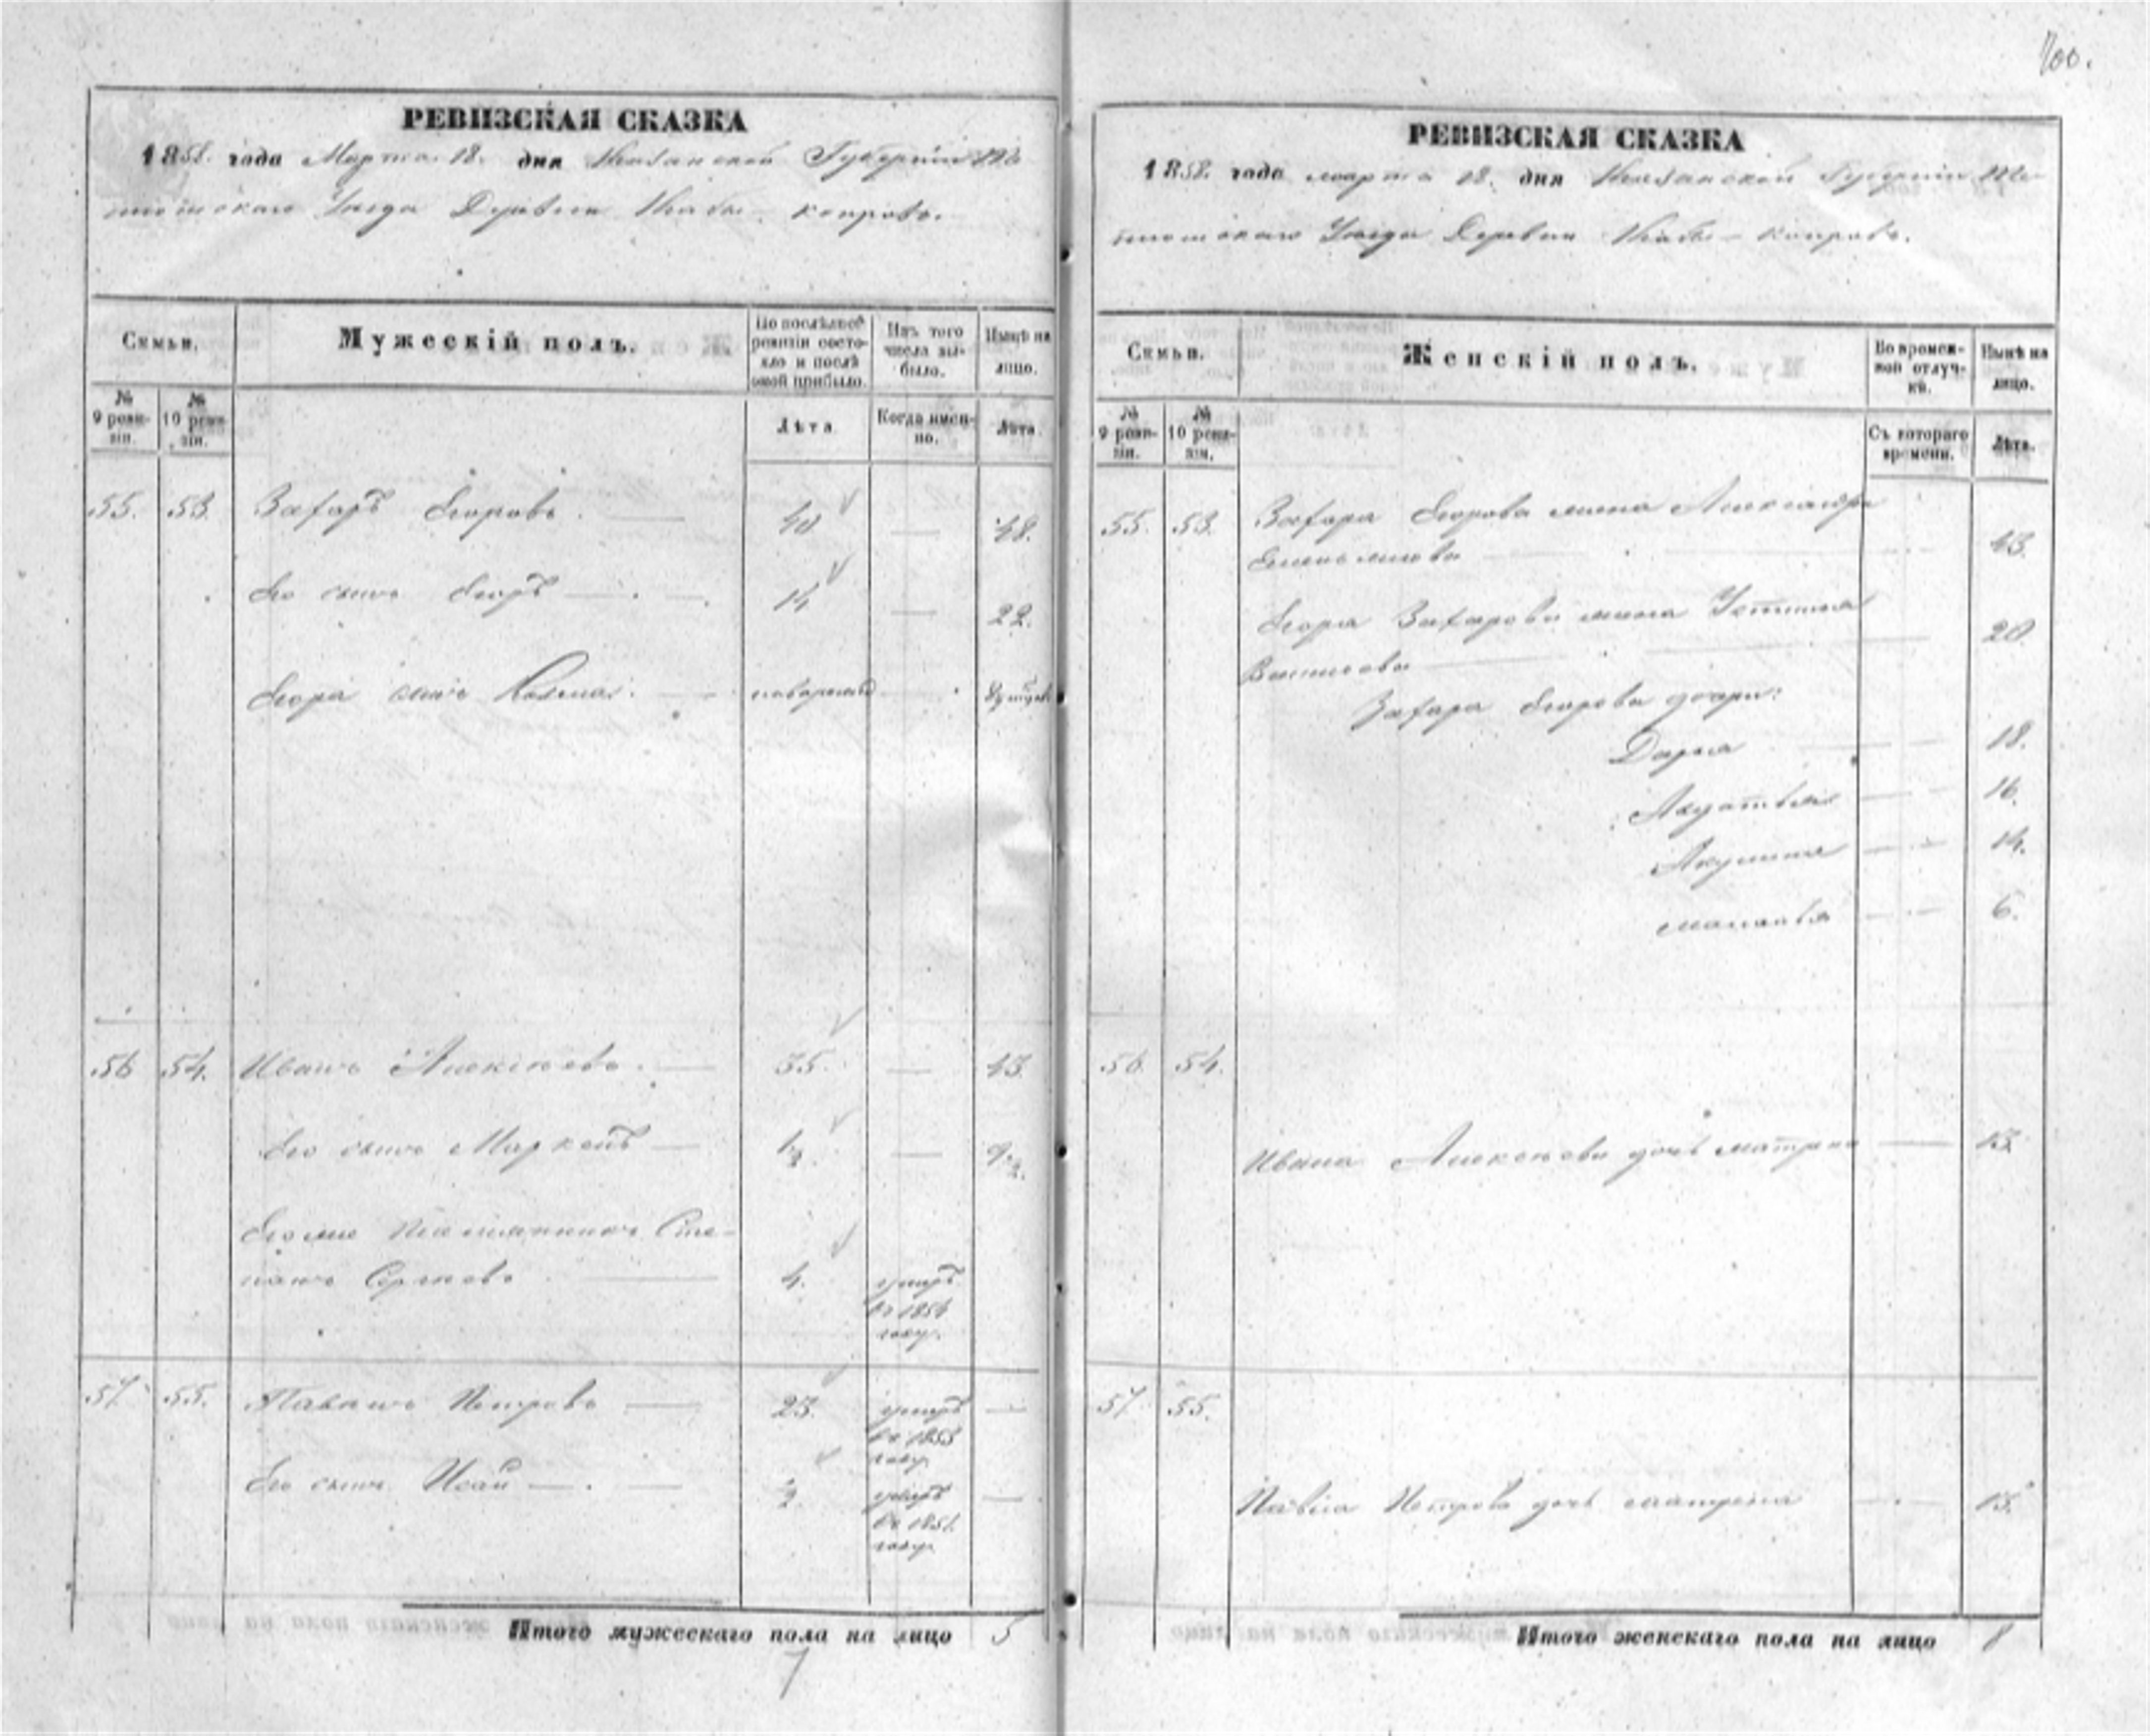 700.
РЕВИЗСКАЯ СКАЗКА
1858. года Марта 18. дня Казанской Губерніи
Уезда Деревни
Семьи.
Мужескій полъ.
По послѣдней ревизіи состояло и послѣ оной прибыло.
Изъ того числа выбыло.
Нынѣ на лицо.
№ 9 ревизіи.
№ 10 ревизіи.
Лѣта.
Когда именно.
Лѣта.
55. 53. Захаръ Егоровъ. 40 — 48.
Его сынъ Егоръ 14 — 22.
Егора сынъ новорожд
56 54. Иванъ Алексѣевъ. 35. — 43.
Его сынъ Маркелъ 1½ — 9½
Его же племянникъ Сте-
панъ Сергѣевъ 4. умеръ
въ 1854
году.
57. 55. Павелъ Петровъ 23. умеръ —
въ 1853
году.
Его сынъ Исай ½ умеръ —
въ 1851.
году
Итого мужескаго пола на лицо 5
7
РЕВИЗСКАЯ СКАЗКА
1858. года марта 18. дня Казанской Губерніи
Уезда Деревни
Семьи.
Женскій полъ.
Во временной отлучкѣ.
Нынѣ на лицо.
№ 9 ревизіи.
№ 10 ревизіи.
Съ котораго времени.
Лѣта.
55. 53. Захара Егорова жена Александра
Емельянова 43.
Егора Захарова жена Устинья 20
Захара Егорова дочери:
Дарья 18.
Авдотья 16.
Акулина 14.
6.
56. 54.
Ивана Алексѣева дочь матрена 13
57. 55.
Павла Петрова дочь матрена 15.
Итого женскаго пола на лицо 8